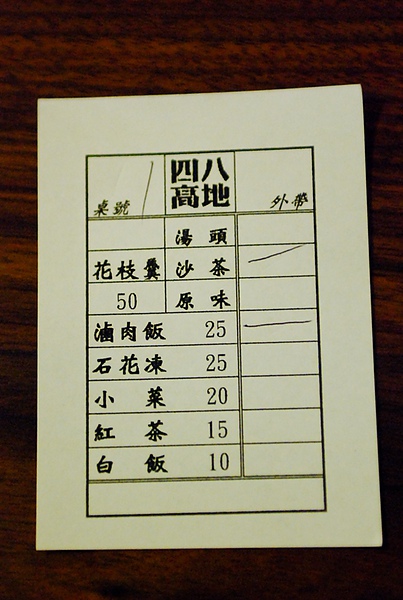 四八
高地
桌號 1 外帶
湯頭
花枝羹 沙茶
50 原味
滷肉飯 25
石花凍 25
小菜 20
紅茶 15
白飯 10